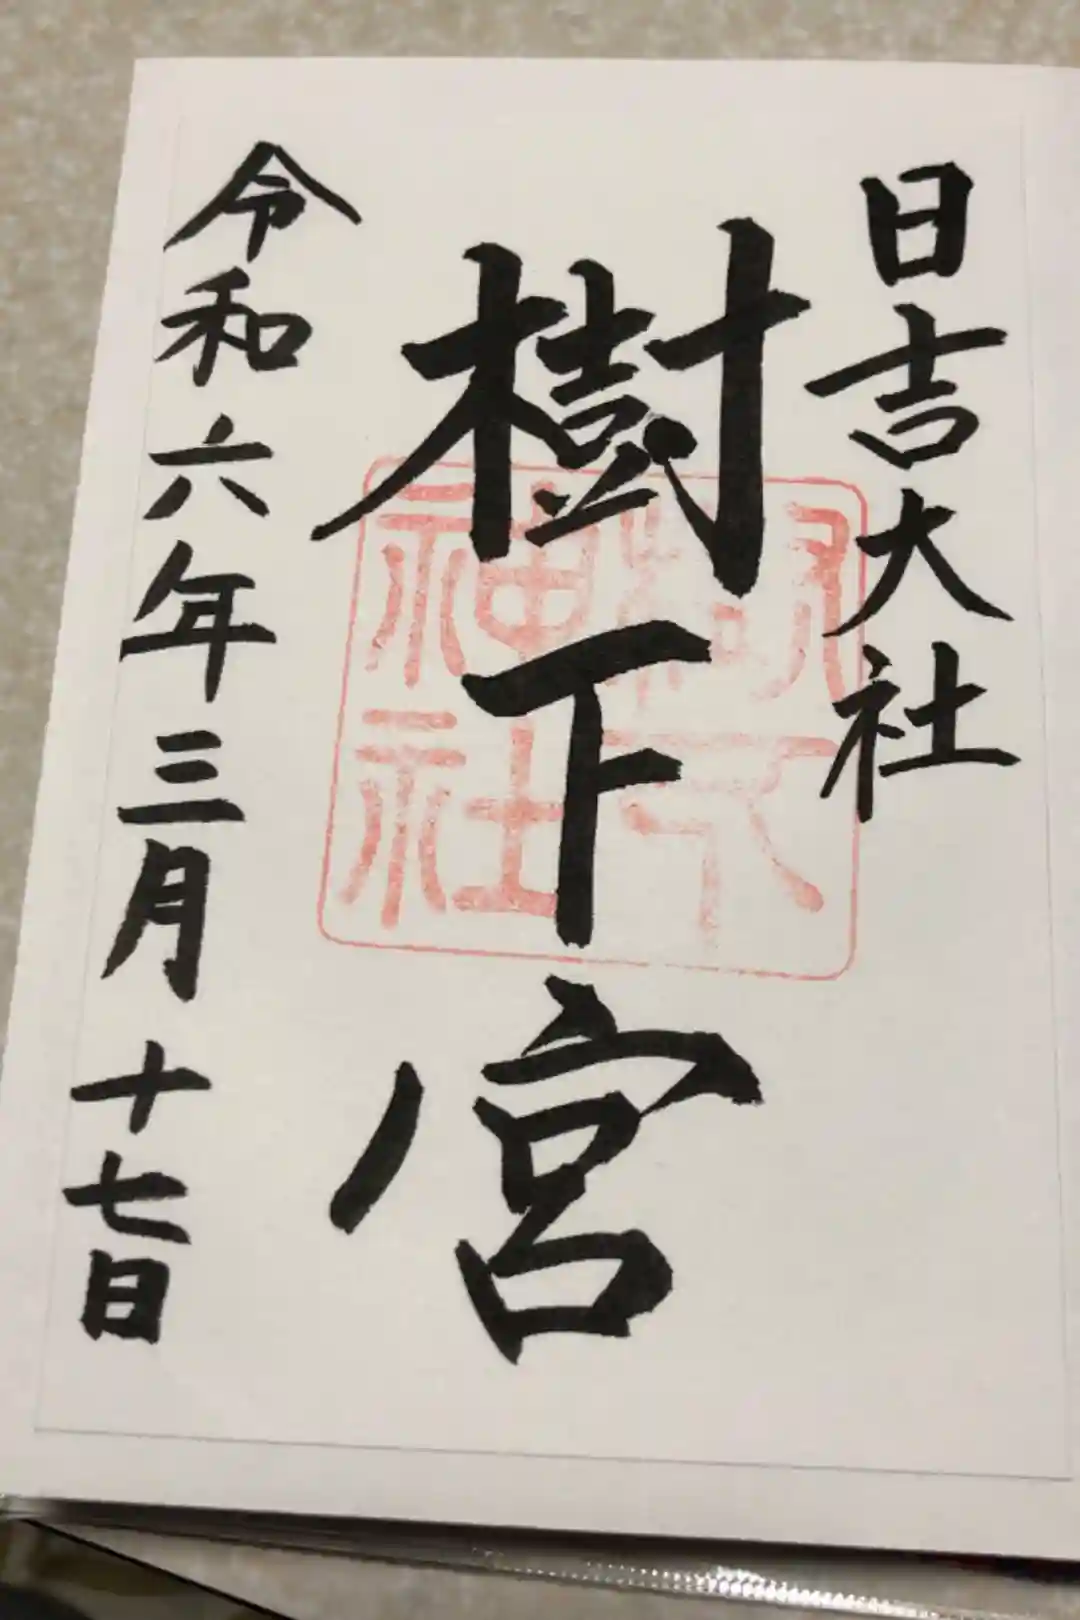 日吉大社
樹下宮
樹下
神社
令和六年三月十七日